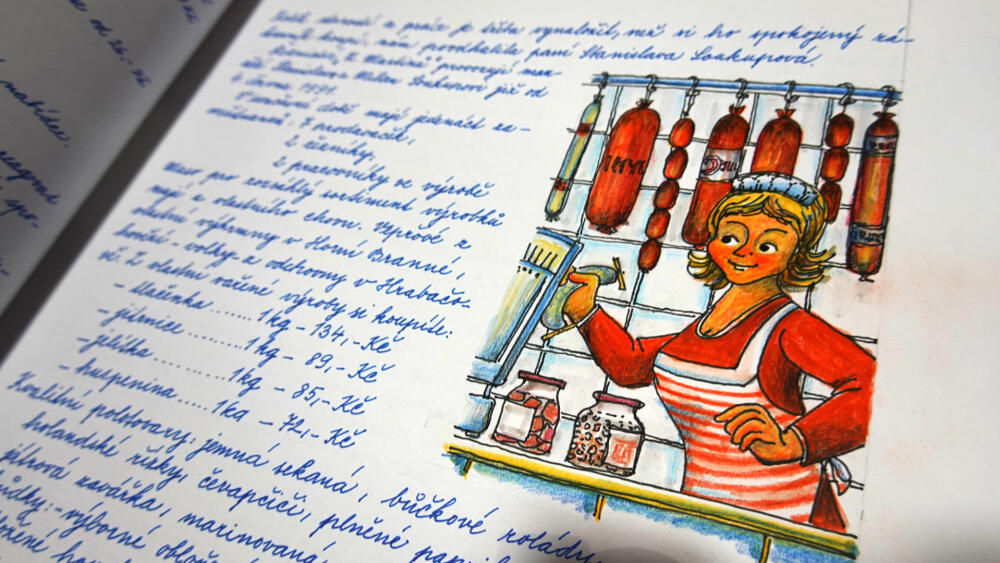 Kč
od 26,- Kč
nabídce.
Kolik starostí a práce je třeba vynaložit, než si ho spokojený zá-
kazník koupí, nám poodhalila paní Stanislava Soukupová.
Řeznictví „U Martina" provozují man-
želé Stanislava a Milan Soukupovi již od
června 1991.
V současné době mají jedenáct za-
městnanců, 7 prodavaček,
2 řezníky,
2 pracovníky ve výrobě
Maso pro rozsáhlý sortiment výrobků
mají z vlastního chovu. Vepřové z
vlastní výkrmny v Horní Branné,
hovězí - volky z odchovny v Hrabačo-
vě. Z vlastní vařené výroby si koupíte:
- tlačenka ....... 1 kg - 134,- Kč
- jitrnice ........... 1 kg - 89,- Kč
- jelítka ........... 1 kg - 85,- Kč
- huspenina ..... 1 kg - 72,- Kč
Kvalitní polotovary: jemná sekaná, bůčkové rolády,
holandské řízky, čevapčiči, plněné
játrová zavářka, marinovaná
výborné